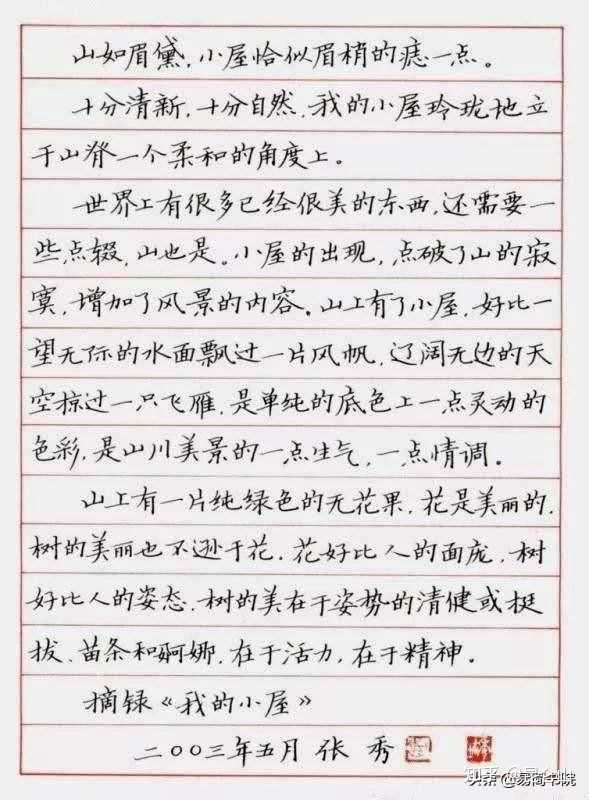 山如眉黛，小屋恰似眉梢的痣一点。
十分清新，十分自然，我的小屋玲珑地立
于山脊一个柔和的角度上。
世界上有很多已经很美的东西，还需要一
些点缀，山也是。小屋的出现，点破了山的寂
寞，增加了风景的内容。山上有了小屋，好比一
望无际的水面飘过一片风帆，辽阔无边的天
空掠过一只飞雁，是单纯的底色上一点灵动的
色彩，是山川美景的一点生气，一点情调。
山上有一片纯绿色的无花果，花是美丽的，
树的美丽也不逊于花。花好比人的面庞，树
好比人的姿态，树的美在于姿势的清健或挺
拔、苗条和婀娜，在于活力，在于精神。
摘録《我的小屋》
二〇〇三年五月 张秀
头条@易简书院